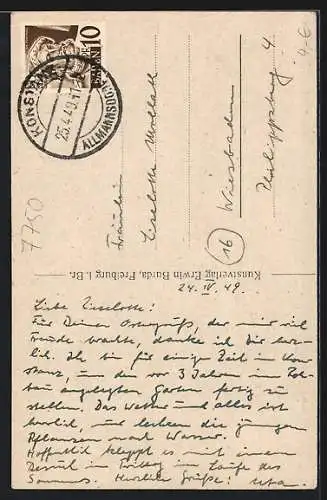 KONSTANZ
25.4.49.11
ALLMANNSDORF
BADEN 10
4.-€
7750
Fräulein
Liselotte
(16) Wiesbaden
Philippsberg 4
Kunstverlag Erwin Burda, Freiburg i. Br.
24. IV. 49.
Liebe Liselotte!
Für Deinen Ostergruß, der mir viel
Freude machte, danke ich Dir herz-
lich. Ich bin für einige Zeit in Kon-
stanz, um den vor 3 Jahren im
angelegten Garten fertig zu
stellen. Das Wetter und alles ist
herrlich, nur lechzen die jungen
Pflanzen nach Wasser.
Hoffentlich klappt es mit einem
Besuch im Laufe des
Sommers. Herzliche Grüße!